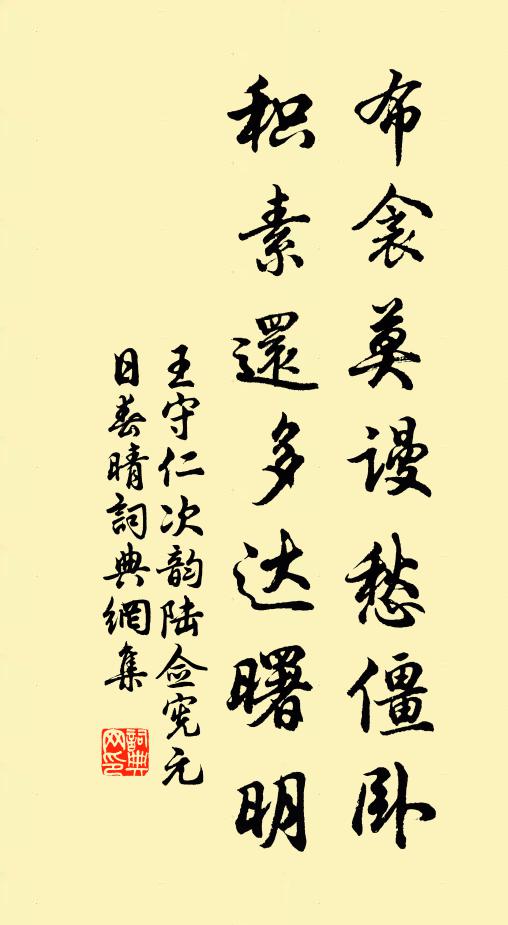 布衾莫谩愁僵卧
积素還多达曙明
王守仁次韵陆佥宪元
日春晴詞典網集
詞典网印